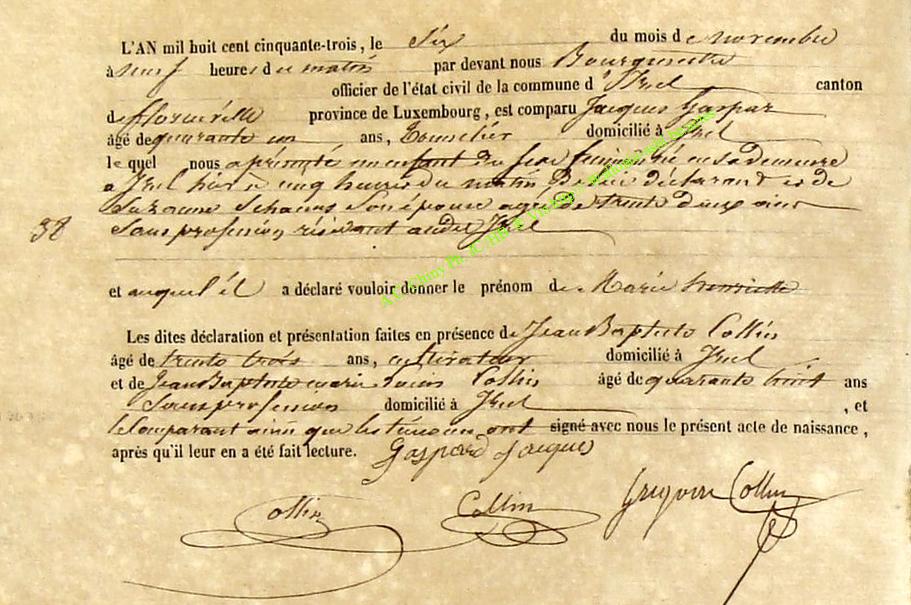 L'AN mil huit cent cinquante-trois, le Six du mois de novembre
à neuf heures du matin par devant nous Bourgmestre
officier de l'état civil de la commune d'Izel canton
de florenville province de Luxembourg, est comparu Jacques Gaspar
âgé de quarante un ans, Tonnelier domicilié à Izel
lequel nous a présenté un enfant du sexe feminin né en sa demeure
a Izel hier à cinq heures du matin De lui déclarant et de
Suzanne son épouse agée de trente deux ans
38
Sans profession résidant audit Izel
et auquel il a déclaré vouloir donner le prénom de Marie henriette
Les dites déclaration et présentation faites en présence de Jean Baptiste Collin
âgé de trente trois ans, cultivateur domicilié à Izel
et de Jean Baptiste marie Collin âgé de quarante huit ans
Sans profession domicilié à Izel , et
le Comparant ainsi que les temoins ont signé avec nous le présent acte de naissance,
après qu'il leur en a été fait lecture. Gaspard Jacques
Collin Collin Gregoire Collin